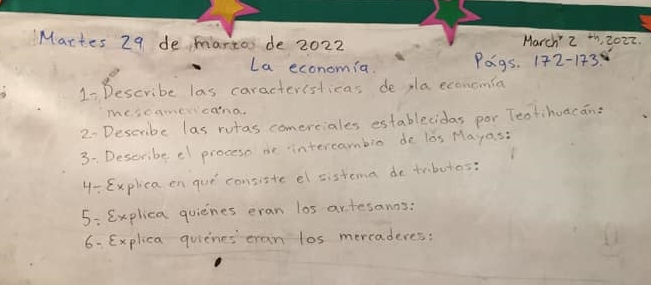 Martes 29 de marzo de 2022
March 2 th, 2022.
La economía.
Págs. 172-173.
1-. Describe las características de la economía
mesoamericana.
2-. Describe las rutas comerciales establecidas por Teotihuacán:
3-. Describe el proceso de intercambio de los Mayas:
4-. Explica en qué consiste el sistema de tributos:
5-. Explica quiénes eran los artesanos:
6-. Explica quiénes eran los mercaderes: